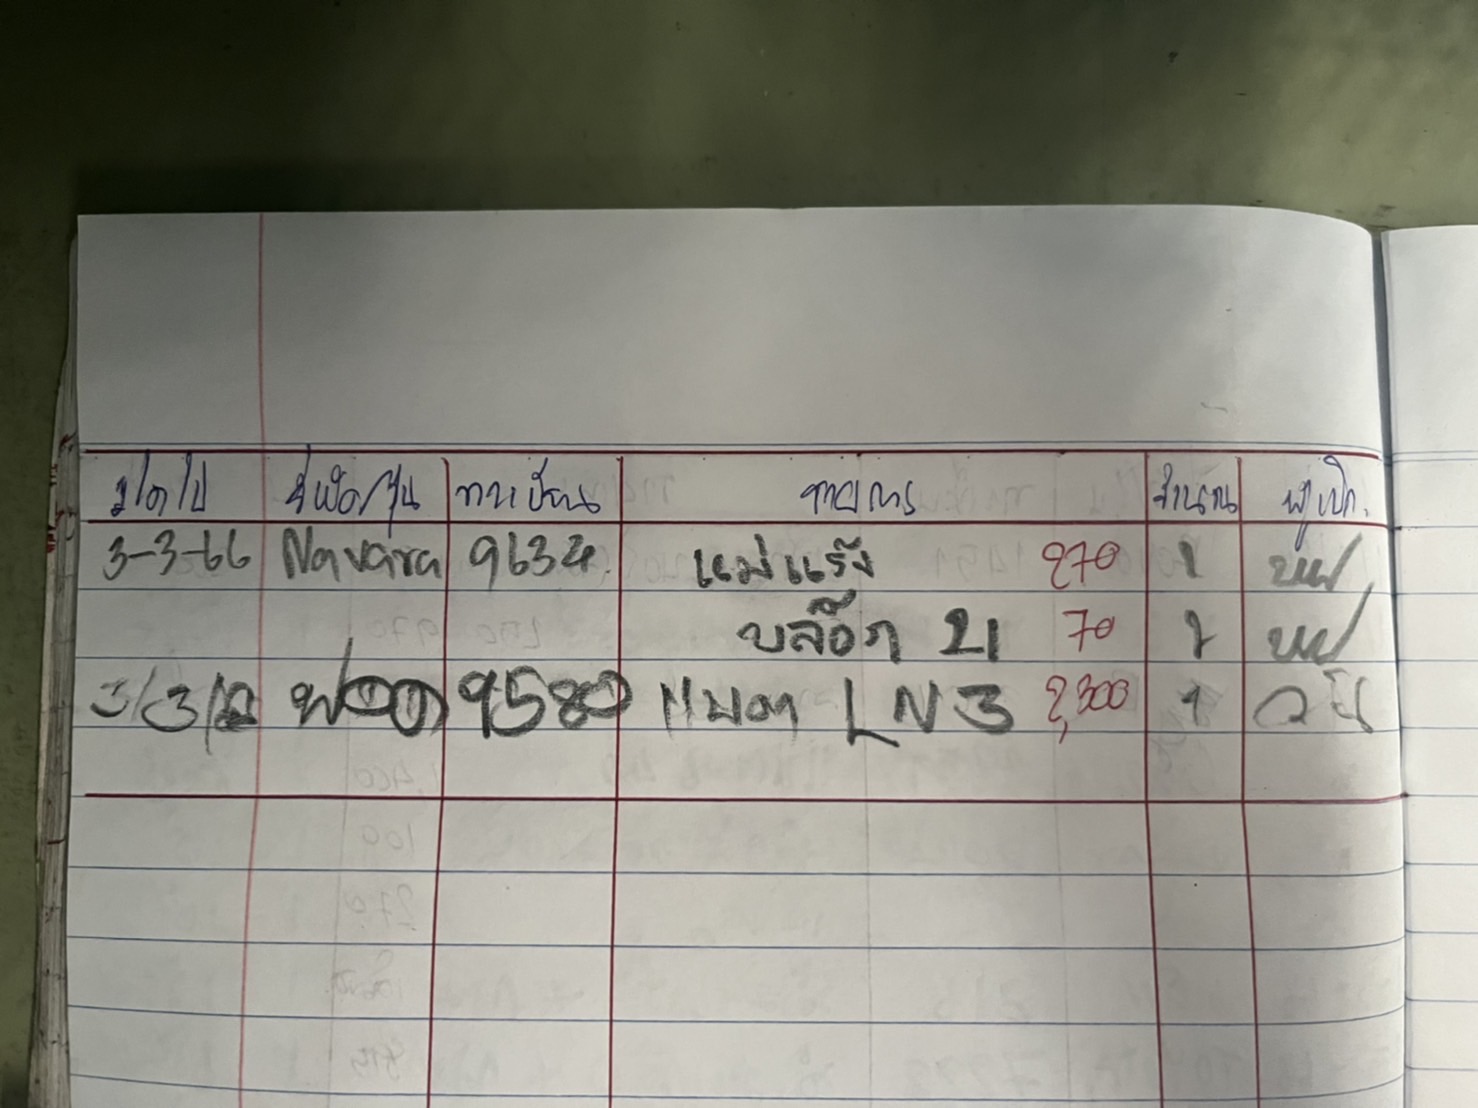 ว/ด/ป ยี่ห้อ/รุ่น ทะเบียน รายการ จำนวน ผู้เบิก
3-3-66 Navara 9634 แม่แรง 270 1
บล๊อก 21 70 1
3/3/ ฟอด 9580 แบต LN3 2,300 1